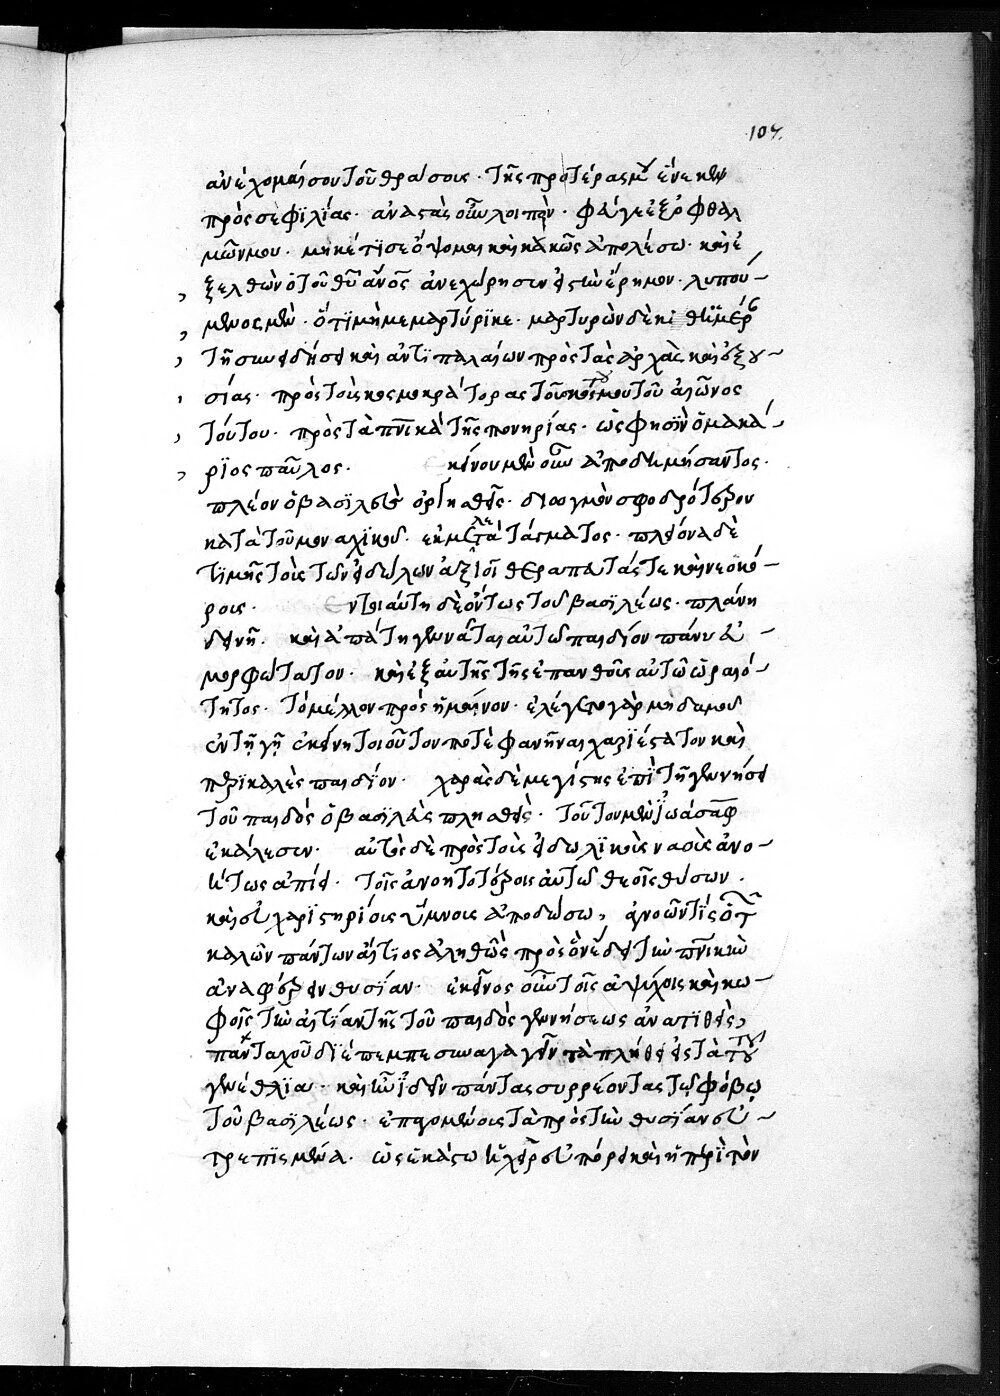 107.
ἀνέχομαί σου τοῦ θράσους· τῆς προτέρας μου ἕνεκεν
πρὸς σὲ φιλίας· ἀναστὰς οὖν λοιπὸν· φεῦγε ἐξ ὀφθαλ
μῶν μου· μηκέτι σε ὄψομαι καὶ κακῶς ἀπολέσω· καὶ ἐ
ξελθὼν ὁ τοῦ θυ ἄνος ἀνεχώρησεν εἰς τὴν ἔρημον· λυπού-
μενος μὲν· ὅτι μὴ μεμαρτύρικε· μαρτυρῶν δὲ καθ' ἡμέρ
τῇ συνειδήσει καὶ ἀντιπαλαίων πρὸς τὰς ἀρχὰς καὶ ἐξου-
σίας· πρὸς τοὺς κοσμοκράτορας τοῦ σκότου τοῦ αἰῶνος
τούτου· πρὸς τὰ πνικὰ τῆς πονηρίας· ὥς φησὶν ὁ μακά-
ριος παῦλος· ἐκείνου μὲν οὖν ἀποδημήσαντος·
πλέον ὁ βασιλεὺς ὀργισθεὶς· διωγμὸν σφοδρότερον
κατὰ τοῦ μοναχικοῦ· ἐκμελετᾷ τάγματος· πλείονα δὲ
τιμῆς τοὺς τῶν εἰδώλων ἀξιοῖ θεραπευτάς τε καὶ νεοκό-
ρους· ἐν τοιαύτῃ δὲ ὄντως τοῦ βασιλέως· πλάνῃ
δεινῇ· καὶ ἀπάτῃ γεννᾶται αὐτῷ παιδίον πάνυ εὐ-
μορφώτατον· καὶ ἐξ αὐτῆς τῆς ἐπανθούσης αὐτῷ ὡραιό-
τητος· τὸ μέλλον προσημαῖνον· ἐλέγετο γὰρ μηδαμοῦ
ἐν τῇ γῇ ἐκείνῃ τοιοῦτον ποτὲ φανῆναι χαριέστατον καὶ
περικαλὲς παιδίον· χαρᾶς δὲ μεγίστης ἐπὶ τῇ γεννήσει
τοῦ παιδὸς ὁ βασιλεὺς πλησθεὶς· τοῦτον μὲν ἰωάσαφ
ἐκάλεσεν· αὐτὸς δὲ πρὸς τοὺς εἰδωλικοὺς ναοὺς ἀνο-
ήτως ἀπίει· τοῖς ἀνοητοτέροις αὐτοῦ θεοῖς θύσων·
καὶ εὐχαριστηρίους ὕμνους ἀποδώσων, ἀγνοῶν τίς ὁ τ
καλῶν πάντων αἴτιος ἀληθῶς πρὸς ὃν ἔδει τὴν πνικὴν
ἀναφέρειν θυσίαν· ἐκεῖνος οὖν τοῖς ἀψύχοις καὶ κω-
φοῖς τὴν αἰτίαν τῆς τοῦ παιδὸς γεννήσεως ἀνατιθεὶς,
πανταχοῦ διέπεμπε συναγαγεῖν τὰ πλήθη εἰς τὰ τούτου
γενέθλια· καὶ ἦν ἰδεῖν πάντας συρρέοντας τῷ φόβῳ
τοῦ βασιλέως· ἐπαγομένους τὰ πρὸς τὴν θυσίαν εὐ-
τρεπισμένα· ὡς ἑκάστῳ ἡ χεὶρ εὐπόρει καὶ ἡ περὶ τὸν